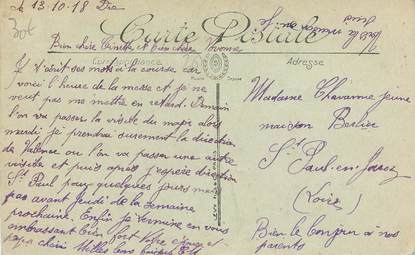 le 13-10-18
30f
Carte Postale
Bien chère Ninette et bien chère Yvonne
Correspondance
Adresse
Je t'écris ces mots à la course car
voici l'heure de la messe et je ne
veut pas me mettre en retard. Demain
l'on va passer la visite du major alors
mardi je prendrai surement la direction
de Valence ou l'on va passer une autre
visite et puis après j'espère direction
St Paul pour quelques jours mais
pas avant jeudi de la semaine
prochaine. Enfin je termine en vous
embrassant bien fort votre époux et
papa chéri Mille bons baisers
Madame Chavanne jeune
maison Berlier
St Paul-en-Jarez
(Loire)
Bien le bonjour à nos
parents